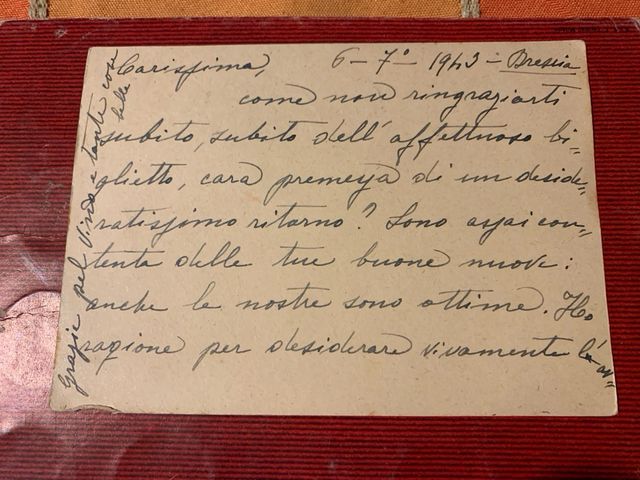 Carissima, 6 - 7° - 1943 - Brescia
come non ringraziarti
subito, subito dell'affettuoso bi=
glietto, cara premessa di un deside=
ratissimo ritorno? Sono assai con=
tenta delle tue buone nuove:
anche le nostre sono ottime. Ho
ragione per desiderare vivamente l'av=
Grazie pel e tante cose
belle